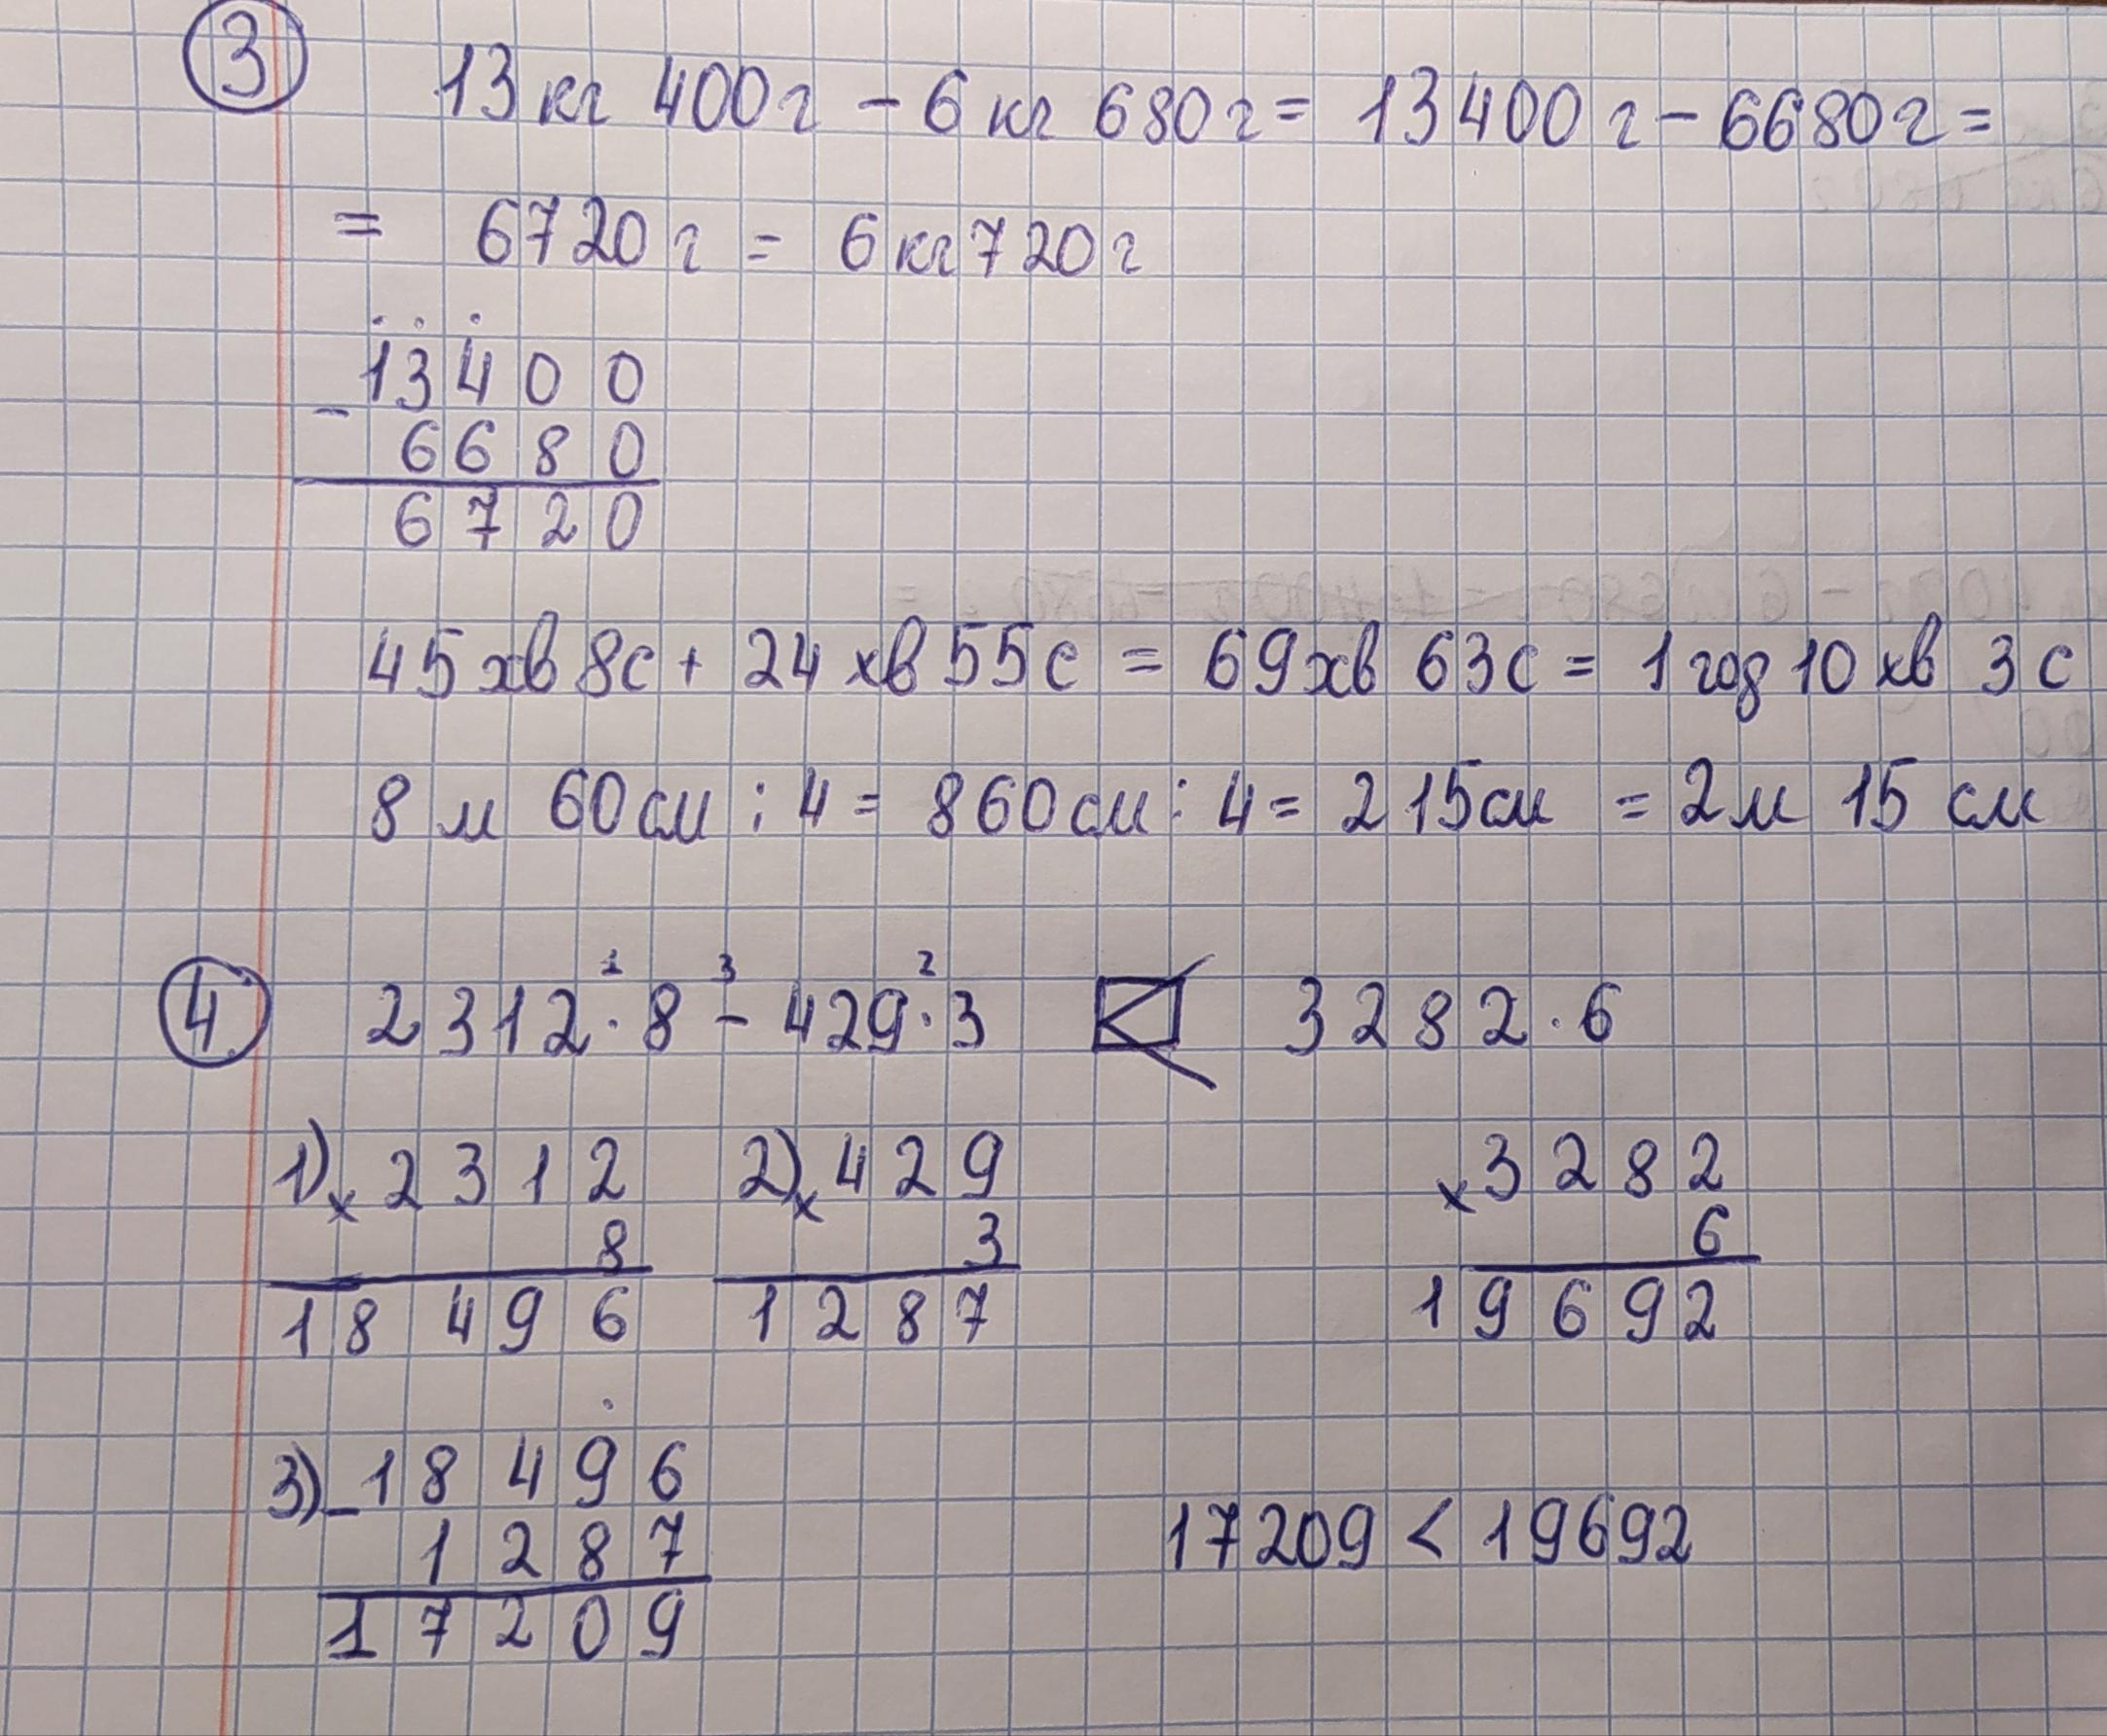 3 13 кг 400 г - 6 кг 680 г = 13400 г - 6680 г =
= 6720 г = 6 кг 720 г
13400
- 6680
6720
45 хв 8 с + 24 хв 55 с = 69 хв 63 с = 1 год 10 хв 3 с
8 м 60 см : 4 = 860 см : 4 = 215 см = 2 м 15 см
1 3 2
4 2312 · 8 - 429 · 3 < 3282 · 6
1) × 2312 2) × 429 × 3282
8 3 6
18496 1287 19692
3) - 18496
1287 17209 < 19692
17209